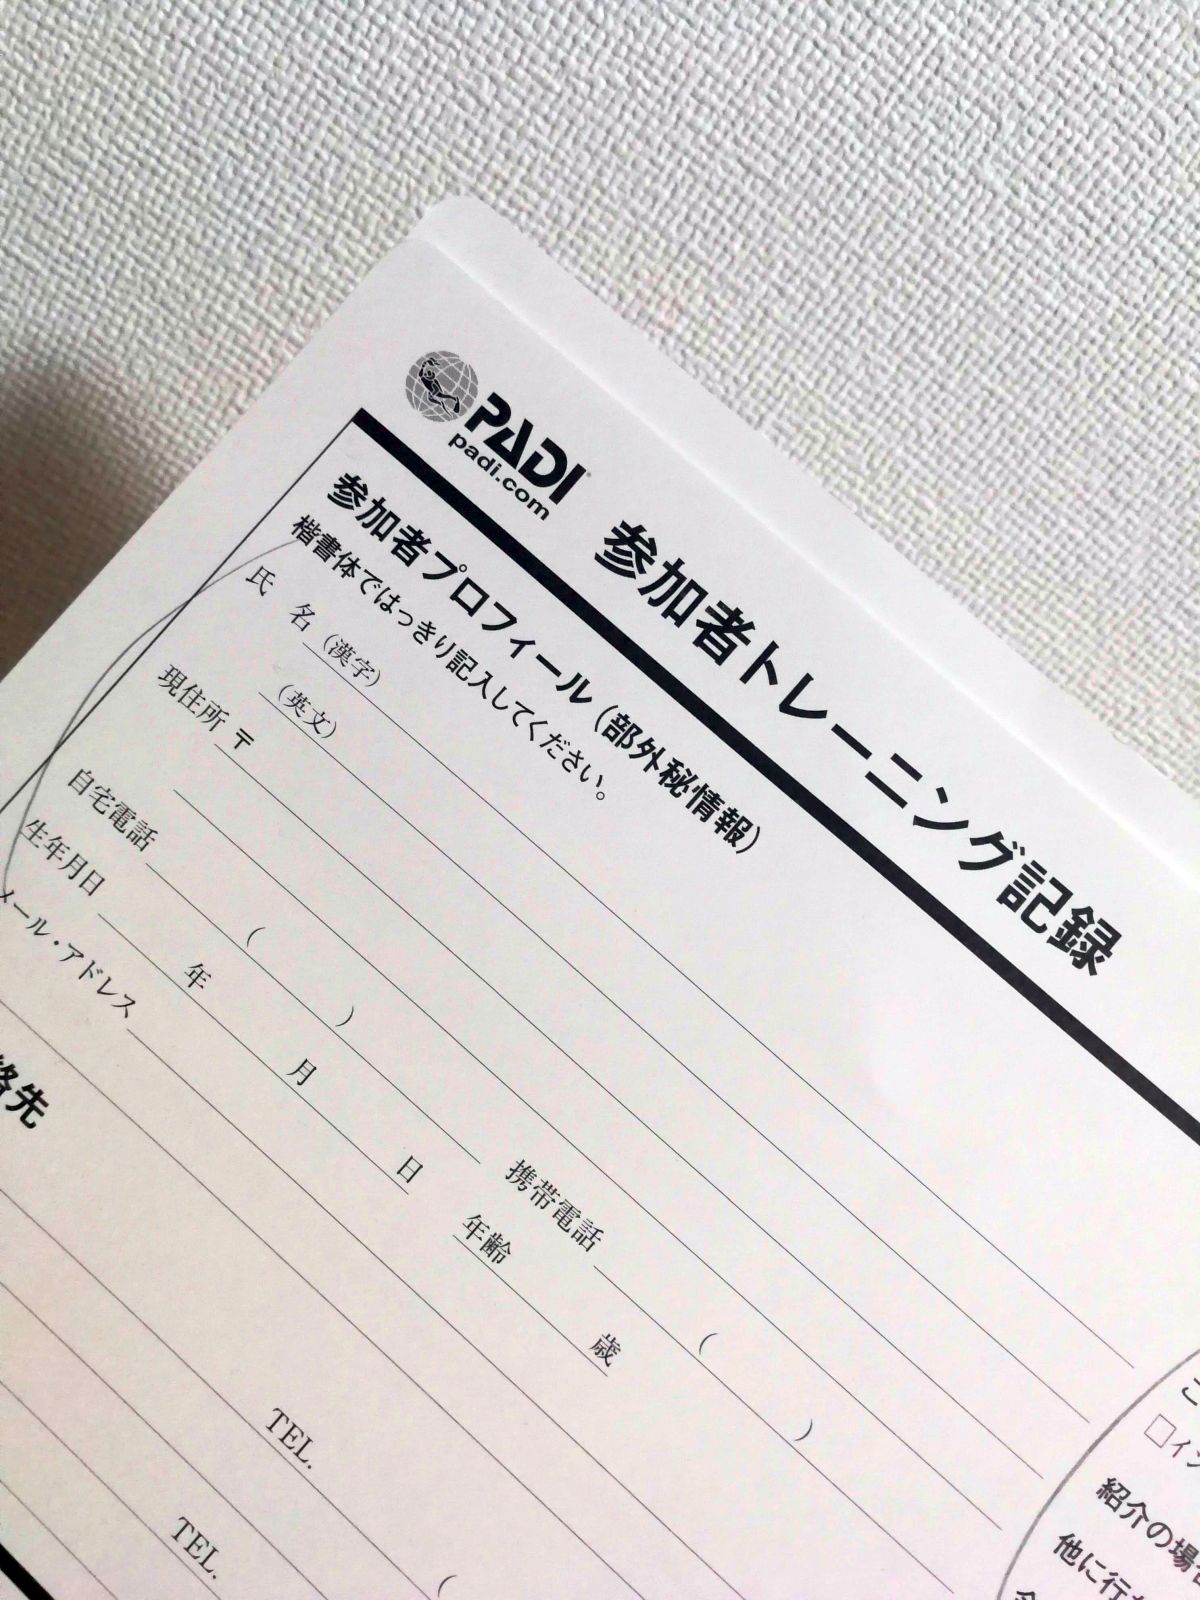 PADI
padi.com
参加者トレーニング記録
参加者プロフィール（部外秘情報）
楷書体ではっきり記入してください。
氏 名（漢字）
（英文）
現住所 〒
自宅電話 ( ) 携帯電話 ( )
生年月日 年 月 日 年齢 歳
メール・アドレス
絡先
TEL. (
TEL.
紹介の場合
他に行